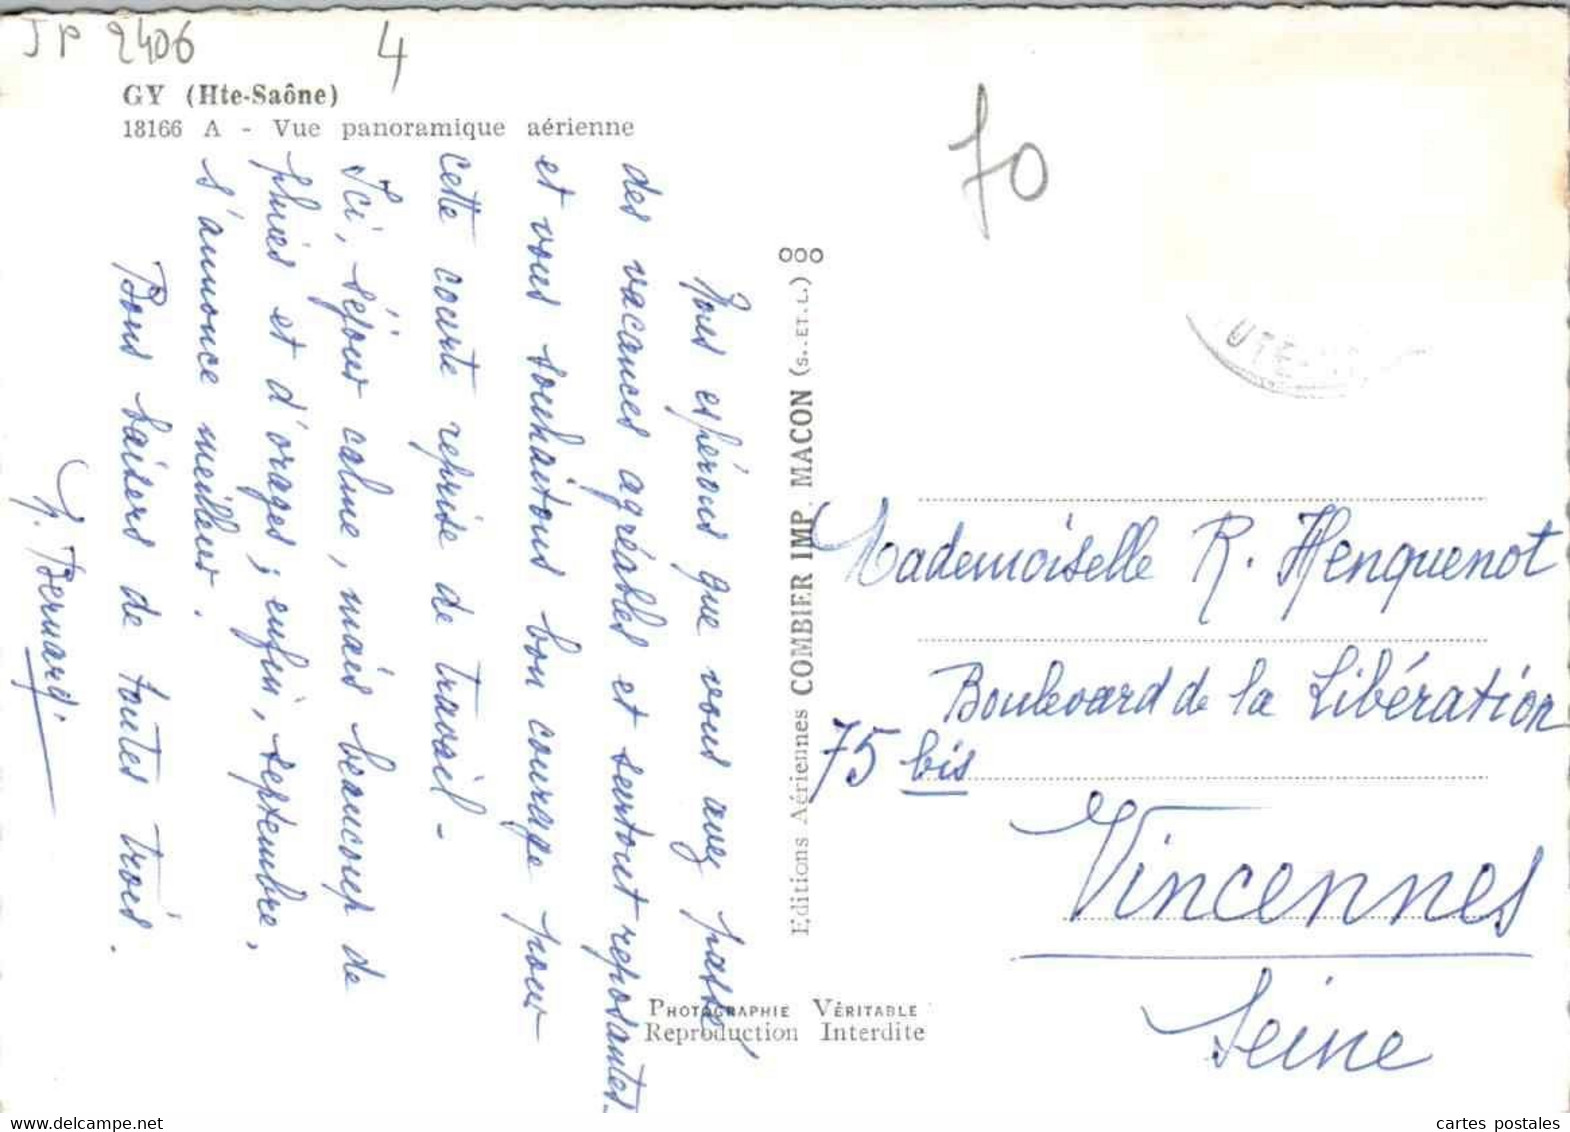 JP 2406
4
70
GY (Hte-Saône)
18166 A - Vue panoramique aérienne
Nous espérons que vous avez passé
des vacances agréables et surtout reposantes
et vous souhaitons bon courage pour
cette courte reprise de travail -
Ici, séjour calme, mais beaucoup de
pluies et d'orages ; enfin, septembre,
s'annonce meilleur.
Bons baisers de toutes trois.
Bernard
Editions Aériennes COMBIER IMP. MACON (S.-ET-L.)
PHOTOGRAPHIE VÉRITABLE
Reproduction Interdite
Mademoiselle R. Henquenot
Boulevard de la Libération
75 bis
Vincennes
Seine
cartes postales